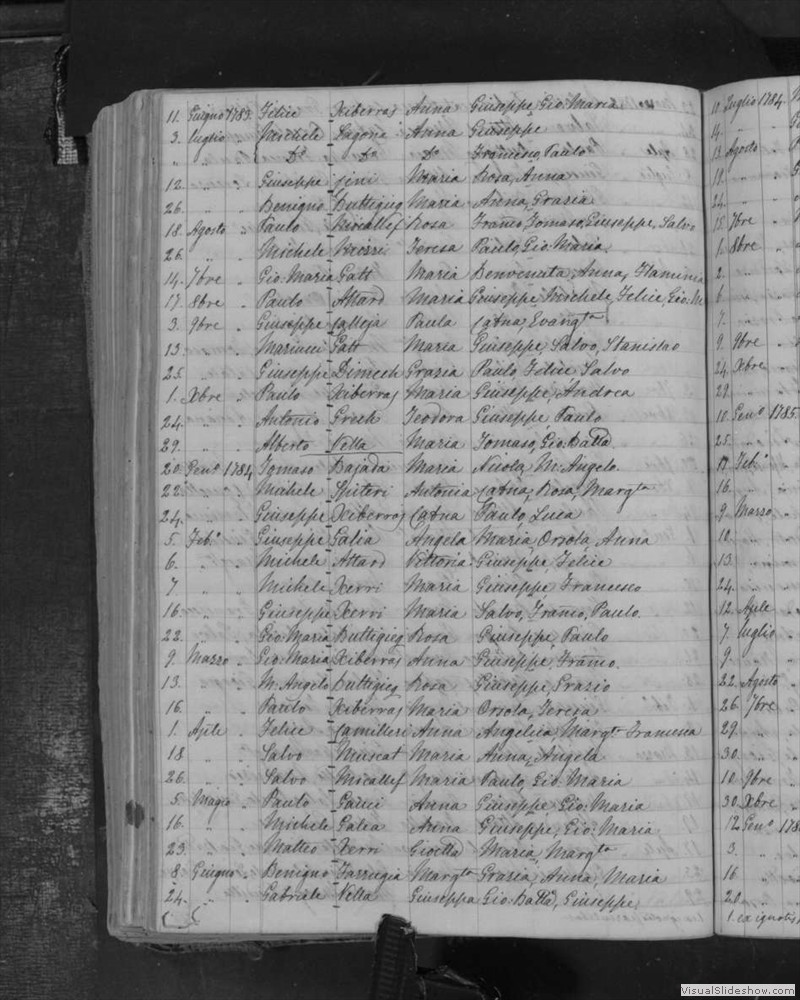 11. Guigno 1783. Felice Xiberras Anna Giuseppe, Gio: Maria
3. Luglio " Michele Sagona Anna Giuseppe
" " Do Do Do Francesco, Paulo
12. " " Giuseppe Cini Maria Rosa, Anna
26. " " Benigno Buttigieg Maria Anna, Grazia
18. Agosto " Paulo Micallef Rosa Franco, Tomaso, Giuseppe, Salvo
26. " " Michele Teresa Paulo, Gio: Maria
14. 7bre " Gio: Maria Gatt Maria Benvenuta, Anna, Flaminia
17. 8bre " Paulo Attard Maria Giuseppe, Michele, Felice, Gio: M
3. 9bre " Giuseppe Calleja Paula Catna, Evangta
13. " " Gatt Maria Giuseppe, Salvo, Stanislao
25. " " Giuseppe Dimech Grazia Paulo, Felice, Salvo
1. Xbre " Paulo Xiberras Maria Giuseppe, Andrea
24. " " Antonio Grech Teodora Giuseppe, Paulo
29. " " Alberto Vella Maria Tomaso, Gio: Batta
20. Geno 1784 Tomaso Bajada Maria Nicola, M: Angelo.
22. " " Michele Spiteri Antonia Catna, Rosa, Margta
24. " " Giuseppe Xiberras Catna Paulo, Luca
5. Febo " Giuseppe Galia Angela Maria, Orsola, Anna
6. " " Michele Attard Vittoria Giuseppe, Felice
7 " " Michele Xerri Maria Giuseppe, Francesco
16. " " Giuseppe Xerri Maria Salvo, Franco, Paulo.
22. " " Gio: Maria Buttigieg Rosa Giuseppe, Paulo
9. Marzo " Gio: Maria Xiberras Anna Giuseppe, Franco.
13. " " M: Angelo Buttigieg Rosa Giuseppe, Grazio
16. " " Paulo Xiberras Maria Orsola, Teresa
1. Aple " Felice Camilleri Anna Angelica, Margta
18 " " Salvo Muscat Maria Anna, Angela
26. " " Salvo Micallef Maria Paulo, Gio: Maria
5. Magio " Paulo Anna Giuseppe, Gio: Maria
16. " " Michele Galea Anna Giuseppe, Gio: Maria
23. " " Matteo Xerri Maria, Margta
8. Guigno " Benigno Farrugia Margta Grazia, Anna, Maria
24. " " Gabriele Vella Giuseppa Gio: Batta, Giuseppe
11. Luglio 1784.
14. " "
13. Agosto "
19. " "
24. " "
15. 7bre "
1. 8bre "
2. " "
6. " "
7. " "
9. 9bre "
24. Xbre "
29. " "
10. Geno 1785.
25. " "
17. Febo "
16. " "
9. Marzo "
10. " "
13. " "
24. " "
12. Aple "
7. Luglio "
9. " "
22. Agosto "
26. 7bre "
29. " "
30. " "
10. 9bre "
30. Xbre "
12. Geno 178
3. " "
16 " "
20. " "
1. ex ignotis
VisualSlideshow.com